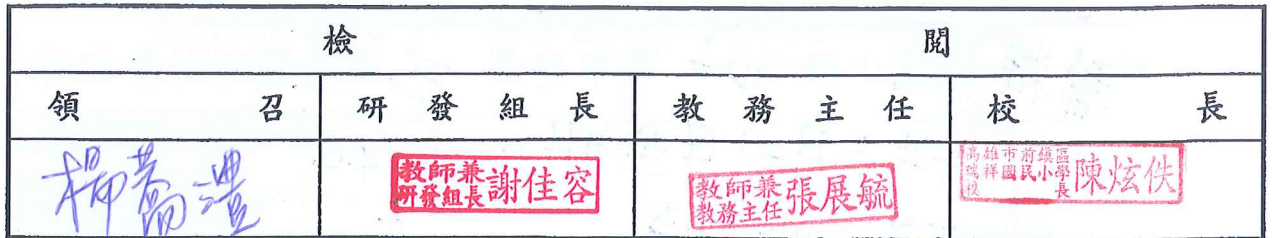 檢 閱
領 召 研 發 組 長 教 務 主 任 校 長
楊蕎灃
教師兼
研發組長 謝佳容
教師兼
教務主任 張展毓
高雄市前鎮區
瑞祥國民小學
校長 陳炫佚